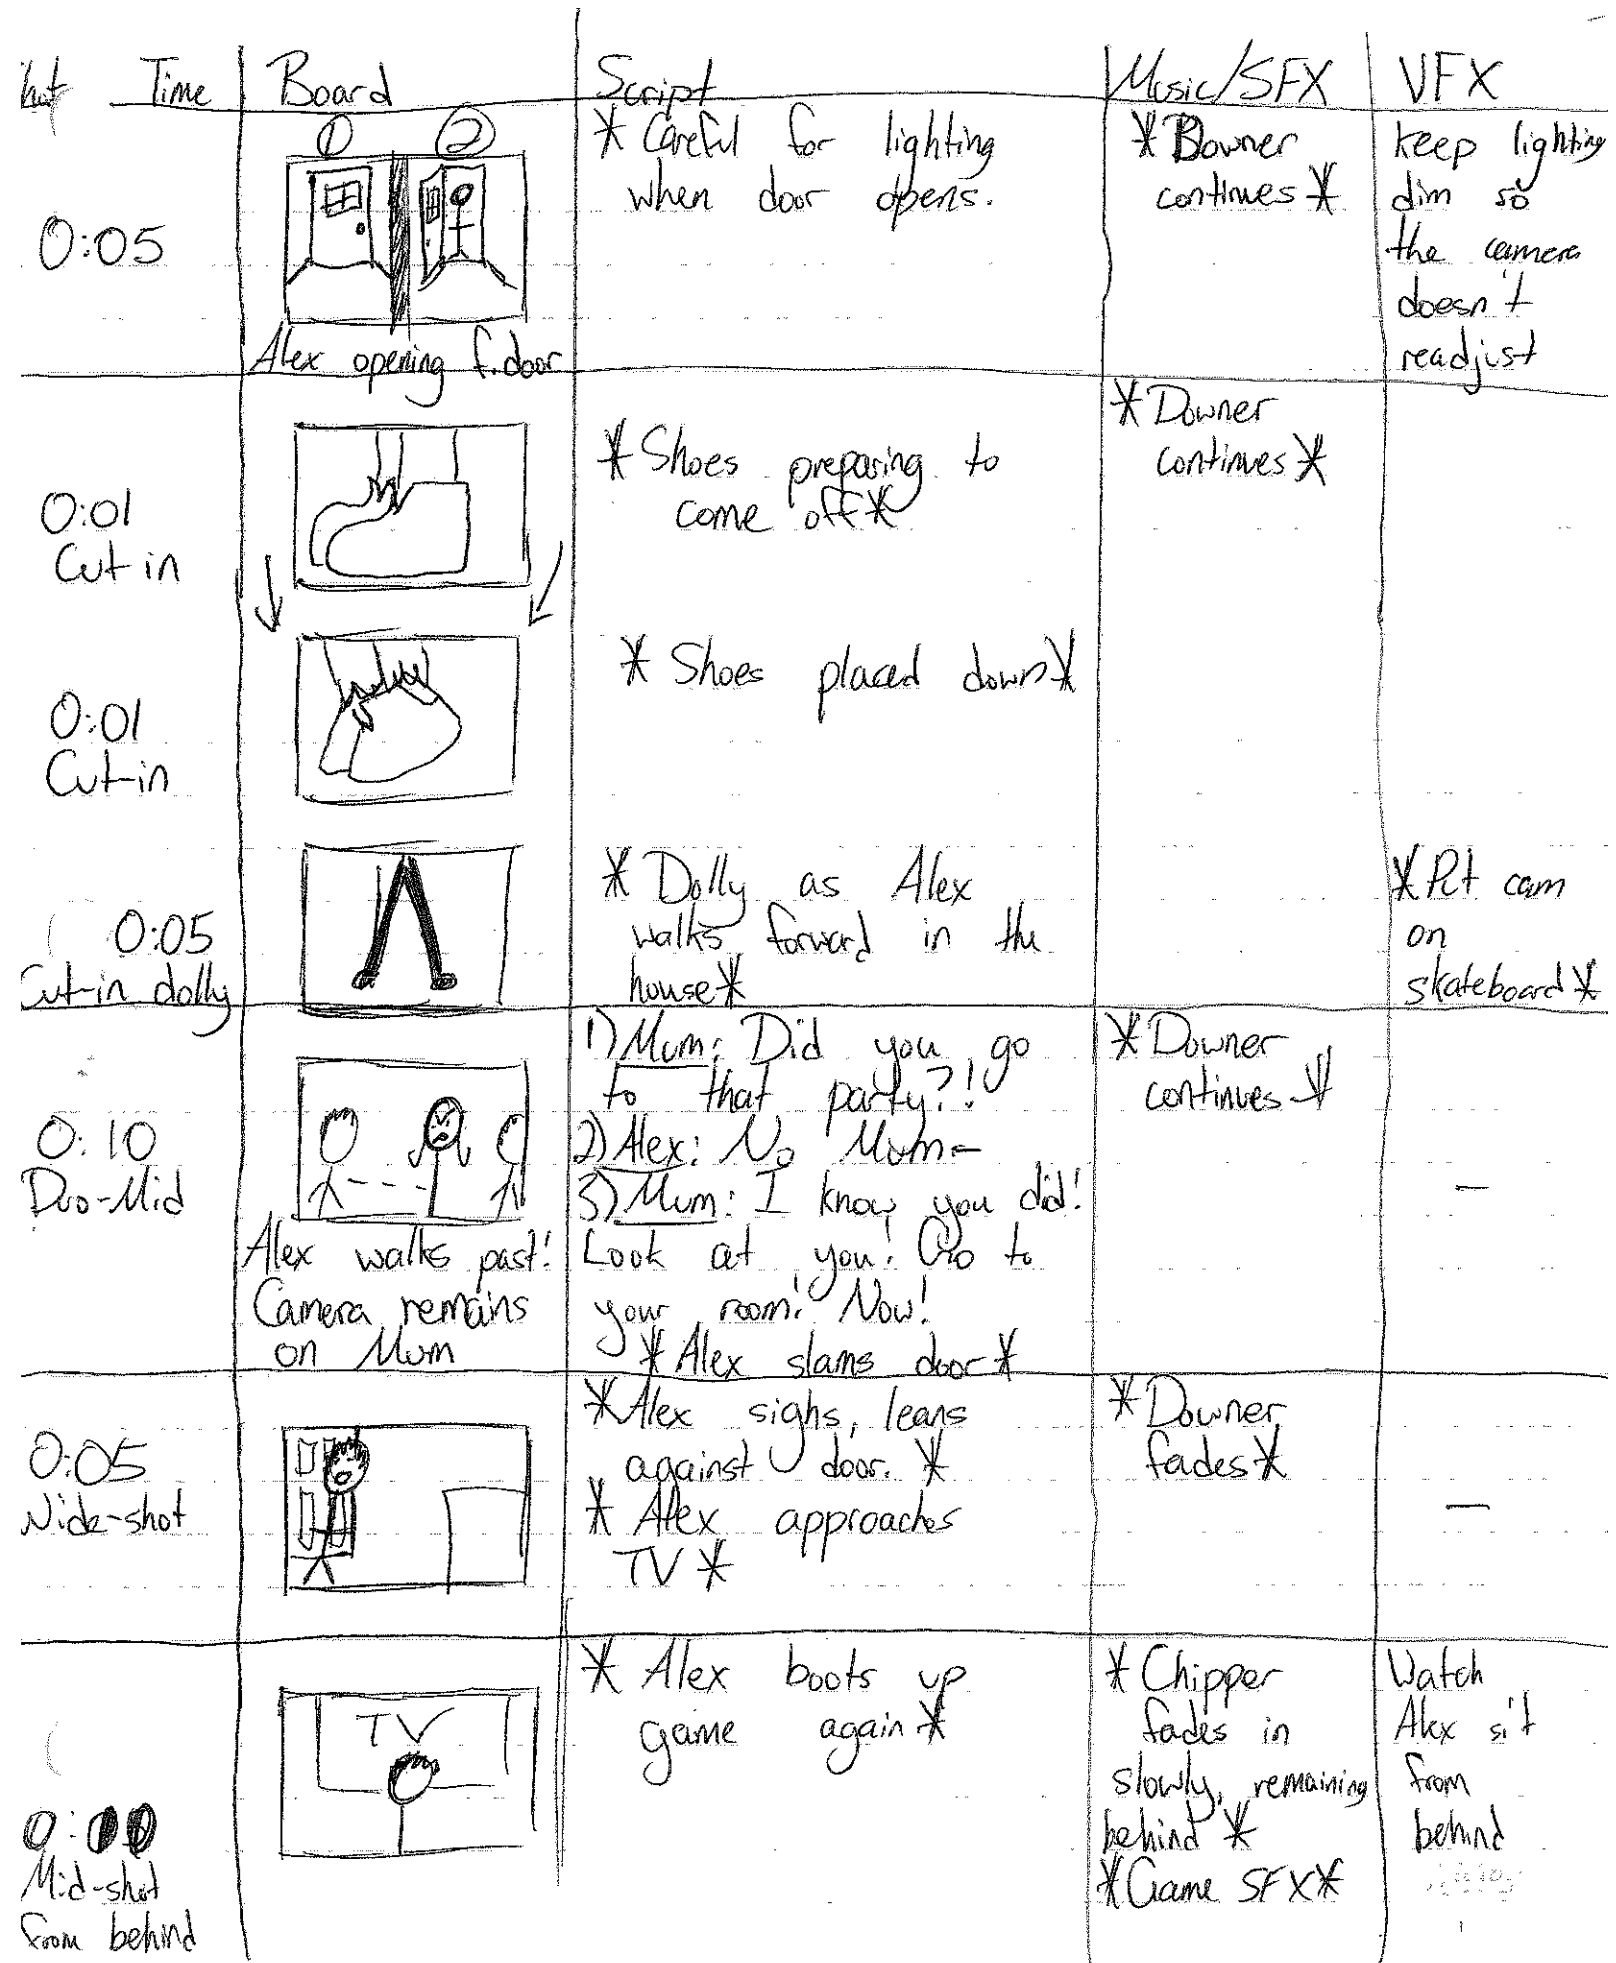 Time Board Script Music/SFX VFX
① ②
0:05
Alex opening f.door
* Careful for lighting
when door opens.
*Downer
continues*
keep lighting
dim so
the camera
doesn't
readjust
0:01
Cut in
*Shoes preparing to
come off*
*Downer
continues*
0:01
Cut-in
* Shoes placed down*
0:05
Cut-in dolly
* Dolly as Alex
walks forward in the
house*
*Put cam
on
skateboard*
0:10
Duo-Mid
Alex walks past!
Camera remains
on Mum
1) Mum: Did you go
to that party?!
2) Alex: No Mum-
3) Mum: I know you did!
Look at you! Go to
your room! Now!
*Alex slams door*
*Downer
continues*
-
0:05
Wide-shot
*Alex sighs, leans
against door. *
* Alex approaches
TV *
*Downer
fades*
-
Mid-shot
from behind
TV
* Alex boots up
game again*
*Chipper
fades in
slowly, remaining
behind *
*Game SFX*
Watch
Alex sit
from
behind